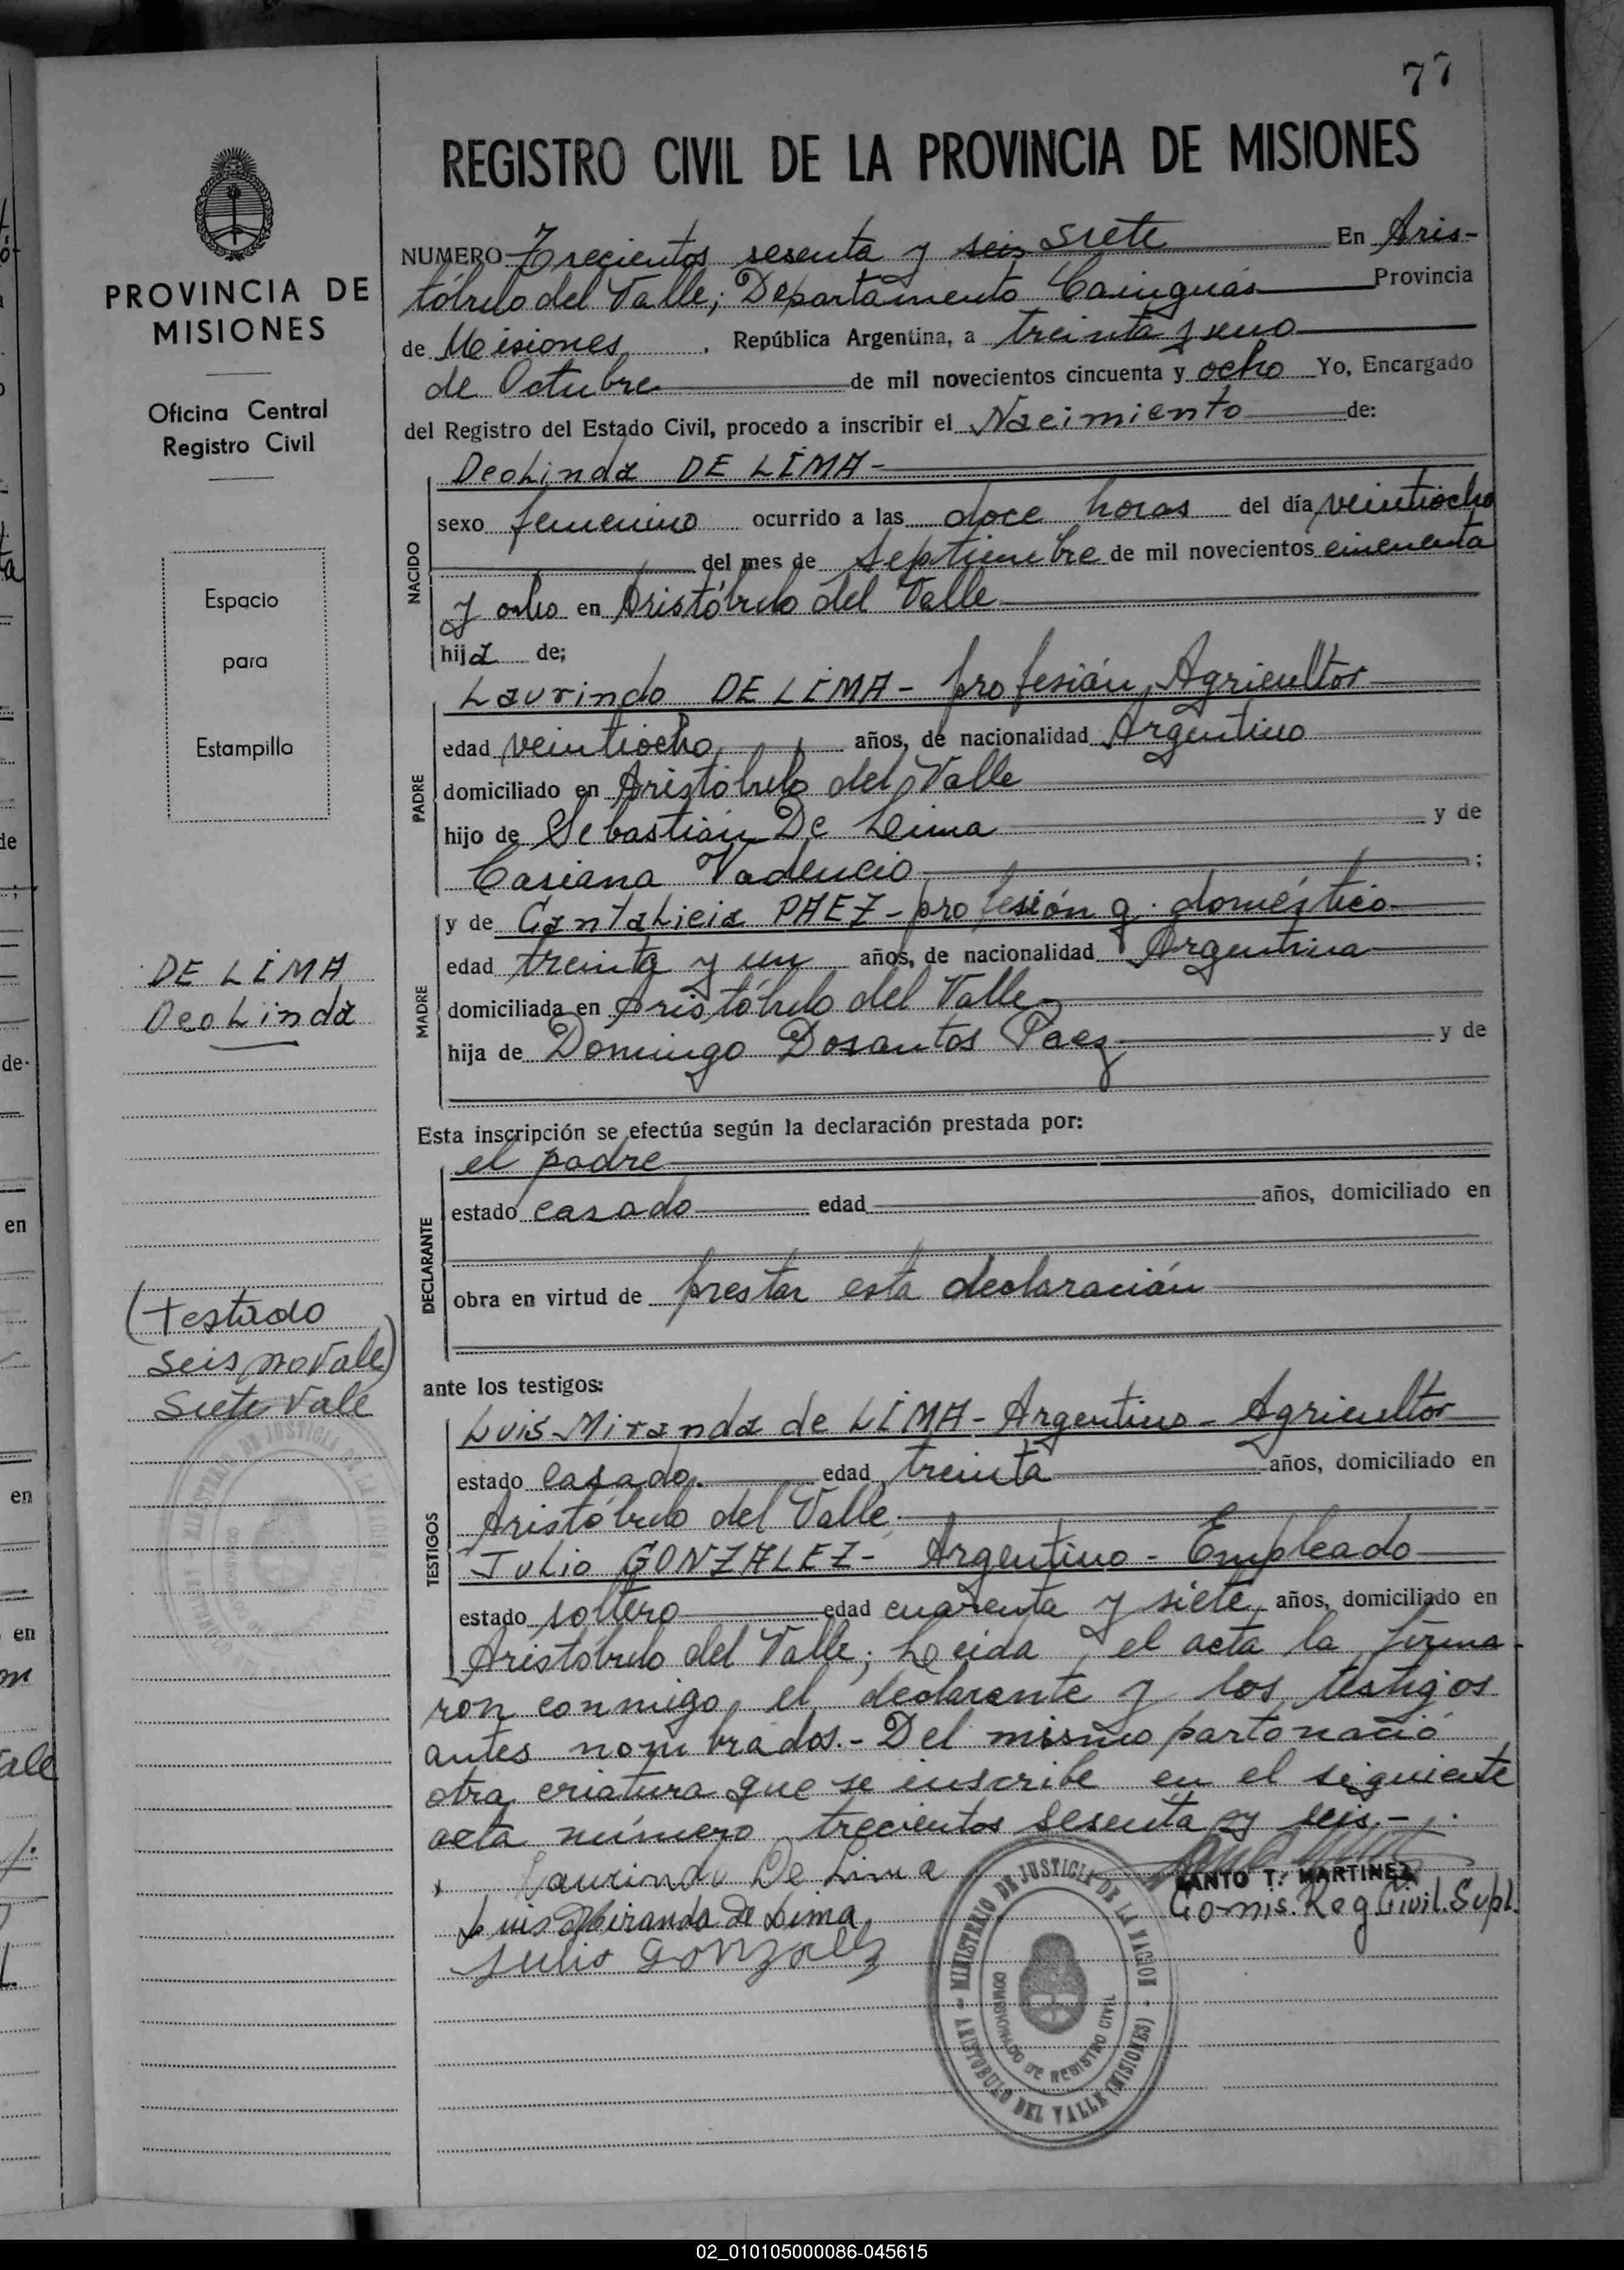 77
REGISTRO CIVIL DE LA PROVINCIA DE MISIONES
PROVINCIA DE
MISIONES
Oficina Central
Registro Civil
Espacio
para
Estampilla
DE LIMA
Deolinda
(testado
seis no vale)
Siete vale
NUMERO Trecientos sesenta y seis siete En Aris-
tóbulo del Valle; Departamento Cainguás Provincia
de Misiones, República Argentina, a treinta y uno
de Octubre de mil novecientos cincuenta y ocho Yo, Encargado
del Registro del Estado Civil, procedo a inscribir el Nacimiento de:
NACIDO
Deolinda DE LIMA-
sexo femenino ocurrido a las doce horas del día veintiocho
del mes de Septiembre de mil novecientos cincuenta
y ocho en Aristóbulo del Valle
hija de;
PADRE
Laurindo DE LIMA- profesión, Agricultor
edad veintiocho años, de nacionalidad Argentino
domiciliado en Aristóbulo del Valle
hijo de Sebastián De Lima y de
Casiana Vadencio;
MADRE
y de Cantalicia PAEZ- profesión q. doméstico
edad treinta y un años, de nacionalidad Argentina
domiciliada en Aristóbulo del Valle-
hija de Domingo Dosantos Paez y de
Esta inscripción se efectúa según la declaración prestada por:
DECLARANTE
el padre
estado casado edad años, domiciliado en
obra en virtud de prestar esta declaración
ante los testigos:
TESTIGOS
Luis Miranda de LIMA- Argentino- Agricultor
estado casado. edad treinta años, domiciliado en
Aristóbulo del Valle.
Julio GONZALEZ- Argentino - Empleado
estado soltero edad cuarenta y siete años, domiciliado en
Aristóbulo del Valle; Leida el acta la firma-
ron conmigo, el declarante y los testigos
antes nombrados.- Del mismo parto nació
otra criatura que se inscribe en el siguiente
acta número trecientos sesenta y seis.-
Laurindo De Lima
Luis Miranda De Lima
Julio Gonzalez
SANTO T. MARTINEZ
Comis. Reg. Civil. Supl.
MINISTERIO DE JUSTICIA DE LA NACION
COMISIONADO DE REGISTRO CIVIL
ARISTOBULO DEL VALLE (MISIONES)
02_010105000086-045615